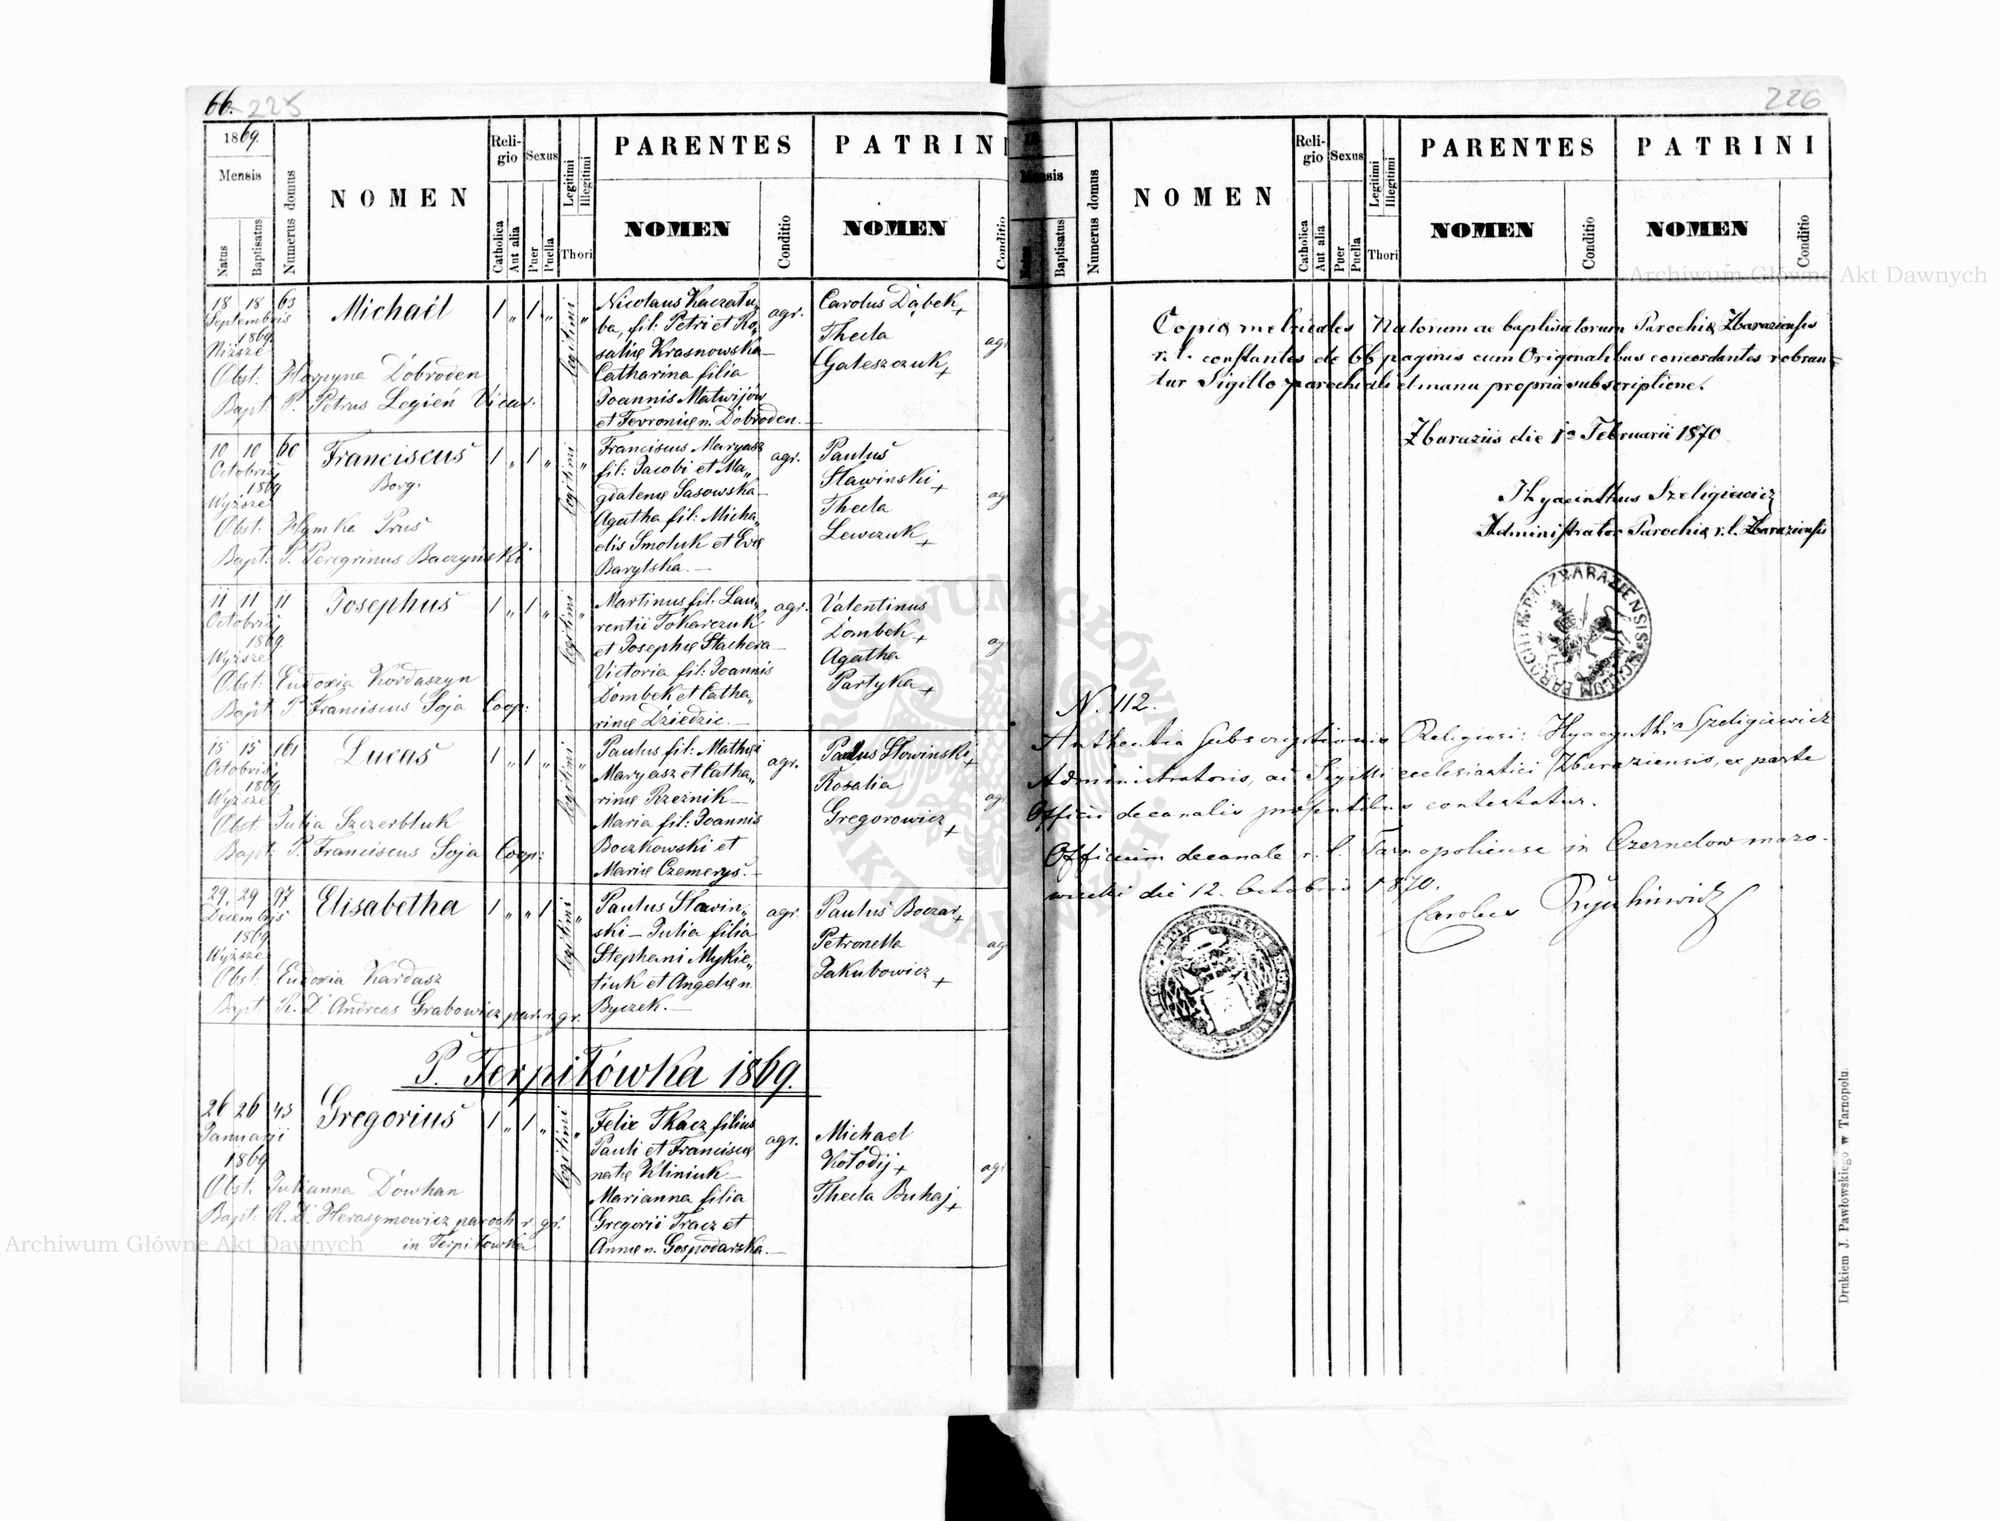 66. 225
1869.
Mensis
Natus
Baptisatus
Numerus domus
NOMEN
Religio
Catholica
Aut alia
Sexus
Puer
Puella
Legitimi
Illegitimi
Thori
PARENTES
NOMEN
Conditio
PATRINI
NOMEN
Conditio
18 18 63 Michaël 1 „ 1 „ legitimi „
Septembris
1869
Niższe
Obst: Horpyna Dobroden
Bapt: P. Petrus Legień Vicar.
Nicolaus Kaczału„
ba, fil: Petri et Ro„
salię Krasnowska—
Catharina filia
Joannis Matwijów
et Fevronię n. Dobroden.—
agr.
Carolus Dąbek +
Thecla
Gateszczuk +
agr
10 10 60 Franciscus 1 „ 1 „ legitimi „
Octobris Borg.
1869
Wyższe
Obst: Hymka Prus
Bapt: P. Peregrinus Baczyński
Franciscus Maryasz
fil: Jacobi et Ma„
gdalenę Sasowska—
Agatha fil: Micha„
elis Smoluk et Evę
Barylska.—
agr.
Paulus
Sławinski +
Thecla
Lewczuk +
agr
11 11 11 Josephus 1 „ 1 „ legitimi „
Octobris
1869.
Wyższe
Obst: Eudoxia Kordaszyn
Bapt: P. Franciscus Soja Coop:
Martinus fil: Lau„
rentii Tokarczuk
et Josephę Stachera—
Victoria fil: Joannis
Dombek et Catha„
rinę Dziedzic.—
agr.
Valentinus
Dombek +
Agatha
Partyka +
ag
15 15 161 Lucas 1 „ 1 „ legitimi „
Octobris
1869
Wyższe
Obst: Julia Szczerbluk
Bapt: P. Franciscus Soja Coop:
Paulus fil: Mathęi
Maryasz et Catha„
rinę Rzeźnik—
Maria fil: Joannis
Boczkowski et
Marię Czemerys.—
agr.
Paulus Słowinski +
Rosalia
Gregorowicz +
agr
29 29 97 Elisabetha 1 „ „ 1 legitimi „
Decembris
1869
Wyższe
Obst: Eudoxia Kardasz
Bapt: R. D. Andreas Grabowicz par. r. gr.
Paulus Sławin„
ski— Julia filia
Stephani Mykie„
tiuk et Angelię n
Byczek.—
agr.
Paulus Boczar +
Petronella
Jakubowicz +
ag
P. Terpiłówka 1869.
26 26 43 Gregorius 1 „ 1 „ legitimi „
Januarii
1869
Obst. Julianna Dowhan
Bapt: R. D. Herasymowicz paroch r. gr.
in Terpiłówka
Felix Tkacz filius
Pauli et Franciscę
natę Kliniuk—
Marianna filia
Gregorii Tracz et
Annię n. Gospodarska.—
agr.
Michael
Kołodij +
Thecla Buhaj +
agr
226
Mensis
Natus
Baptisatus
Numerus domus
NOMEN
Religio
Catholica
Aut alia
Sexus
Puer
Puella
Legitimi
Illegitimi
Thori
PARENTES
NOMEN
Conditio
PATRINI
NOMEN
Conditio
Copię metricales Natorum ac baptisatorum Parochię Zbaraziensis
r. l. constantes de 66 paginis cum Originalibus concordantes robran=
tur Sigillo parochiali et manu propria subscriptione.
Zbaraziis die 1a Februarii 1870
Hyacinthus Szeligiewicz
Administrator Parochię r. l. Zbaraziensis
SIGILLUM PAROCHI ZBARAZIENSIS
N. 112.
Authentia Subscriptionis Religiosi: Hyacynthi Szeligiewicz
Administratoris, ac Sigilli ecclesiastici Zbaraziensis, ex parte
Officii decanalis presentibus contestatur.
Officium decanale r. l. Tarnopoliense in Czernelow mazo-
wiecki die 12. Octobris 1870.
Carolus
Drukiem J. Pawłowskiego w Tarnopolu.
Archiwum Główne Akt Dawnych
Archiwum Główne Akt Dawnych
ARCHIWUM GŁÓWNE AKT DAWNYCH